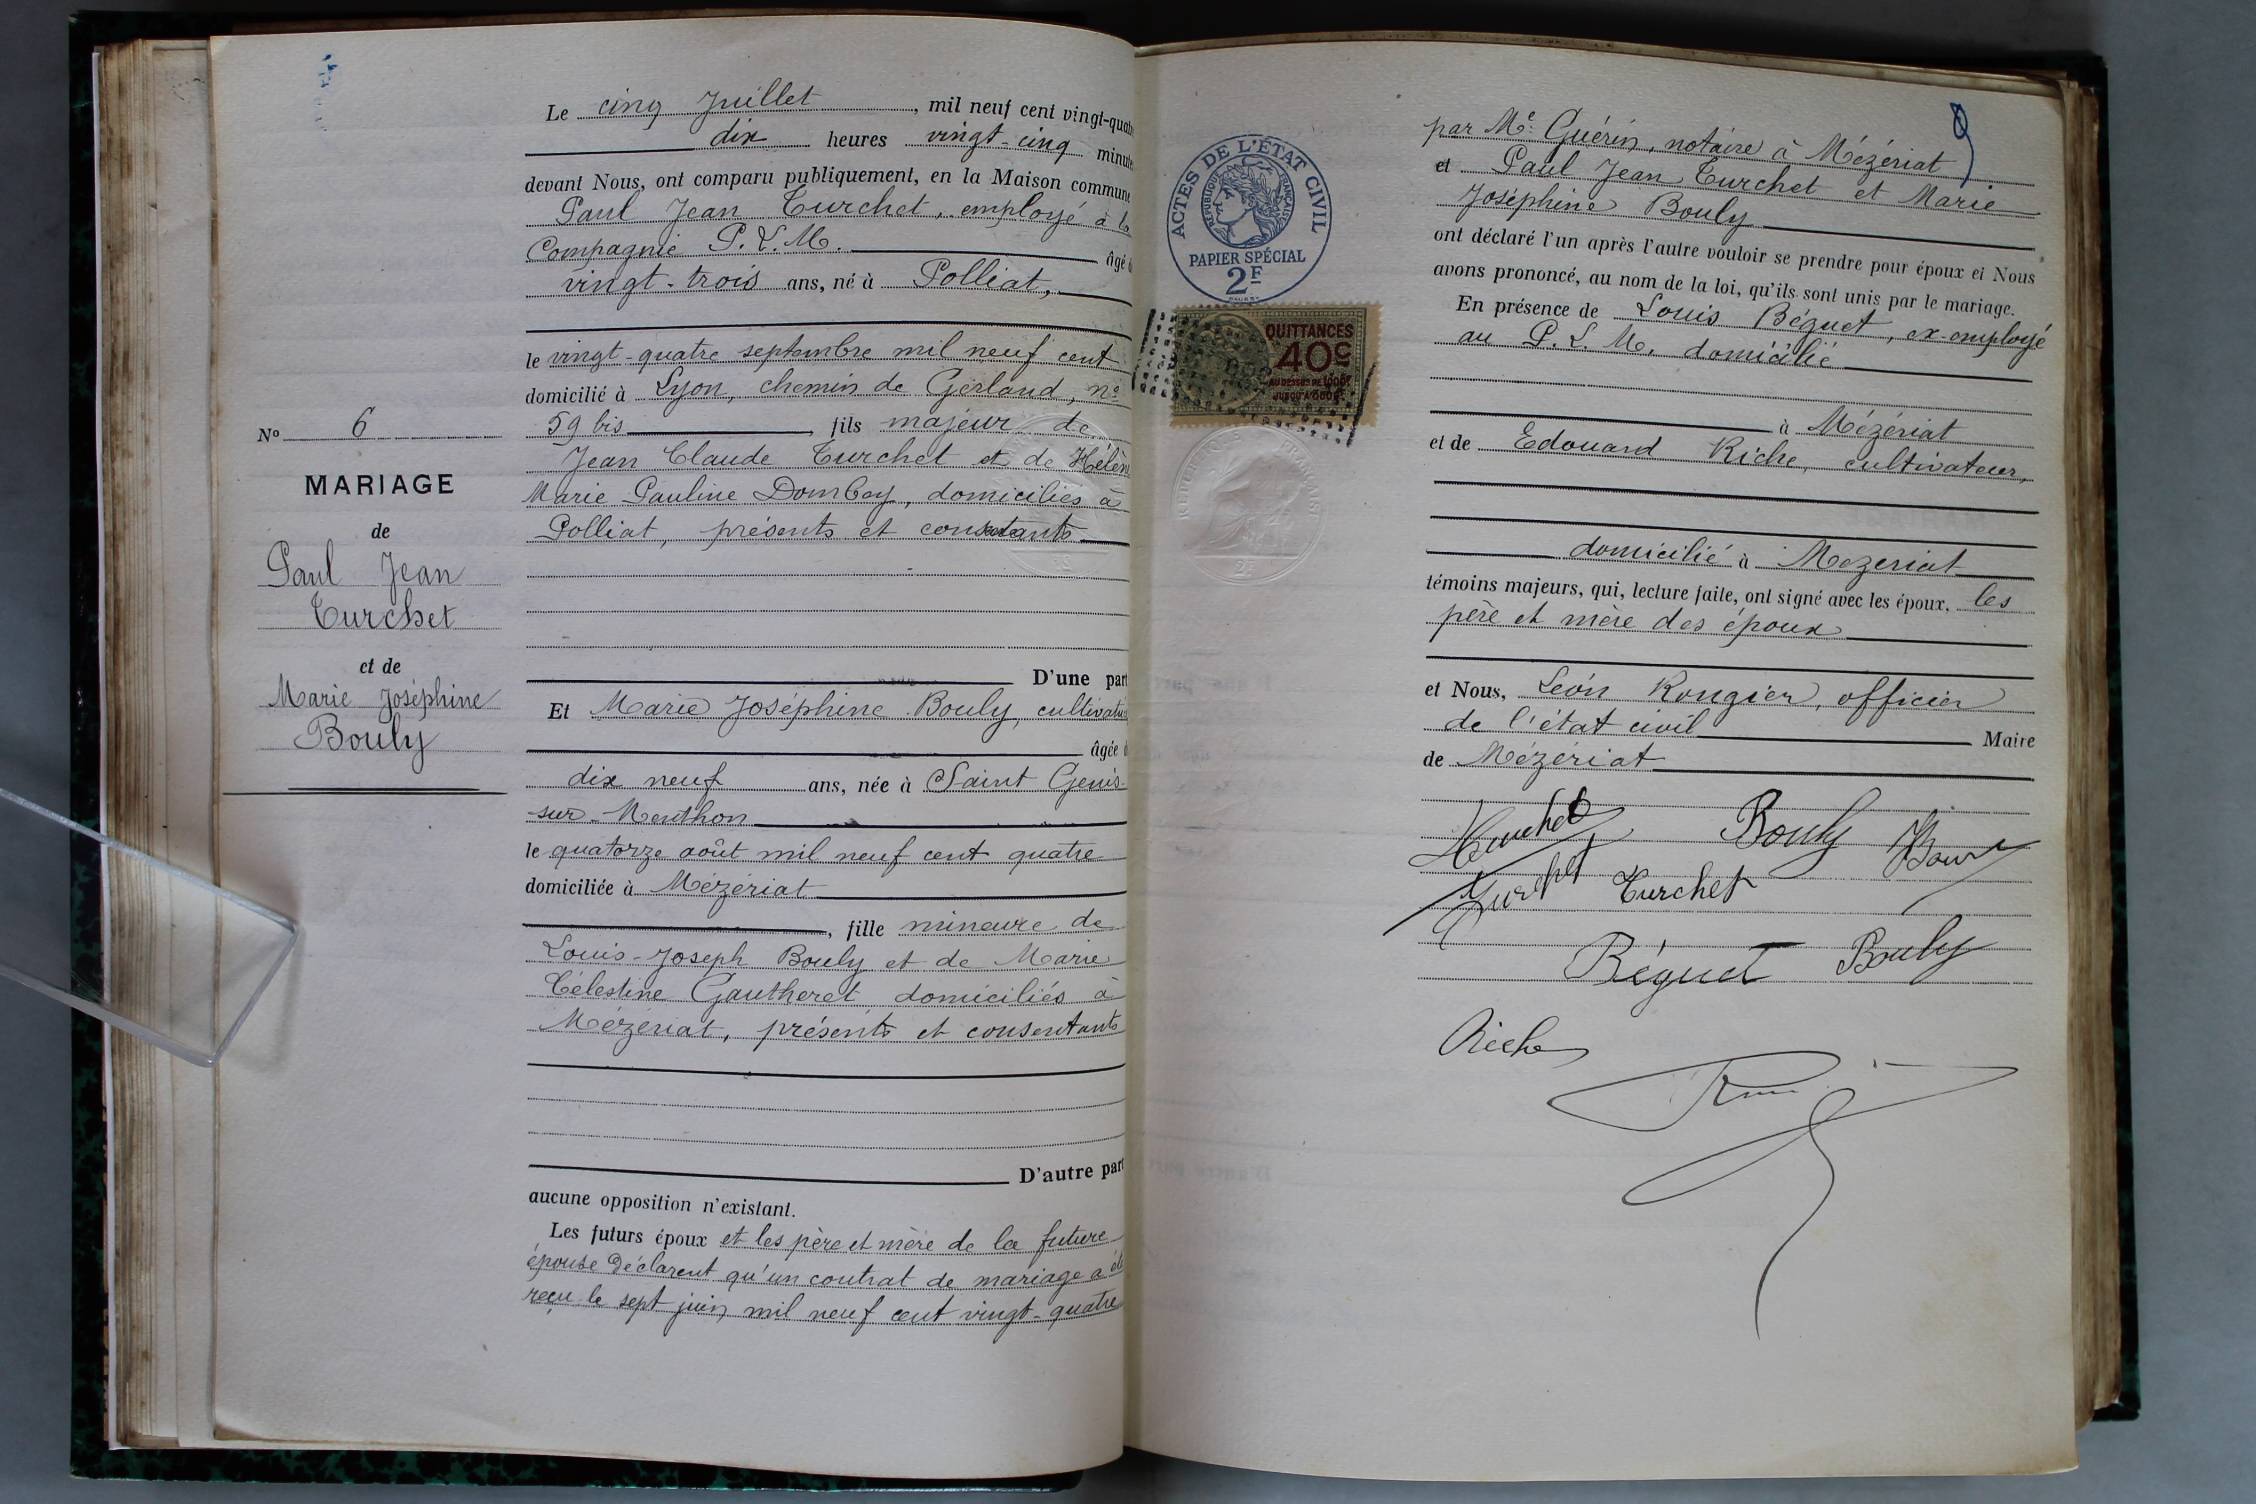 N° 6
MARIAGE
de
Paul Jean
Turchet
et de
Marie Joséphine
Bouly
Le cinq Juillet, mil neuf cent vingt-quatr
dix heures vingt-cinq minute
devant Nous, ont comparu publiquement, en la Maison commune
Paul Jean Turchet, employé à la
Compagnie P.L.M. âgé d
vingt-trois ans, né à Polliat,
le vingt-quatre septembre mil neuf cent
domicilié à Lyon, chemin de Gerland, n°
59 bis, fils majeur de
Jean Claude Turchet et de Hélèn
Marie Pauline Dombey, domiciliés à
Polliat, présents et consentants
D'une part
Et Marie Joséphine Bouly, cultivatr
âgée d
dix neuf ans, née à Saint Genis-
sur-Menthon
le quatorze août mil neuf cent quatre
domiciliée à Mézériat
, fille mineure de
Louis-Joseph Bouly et de Marie
Célestine Gautheret domiciliés à
Mézériat, présents et consentants
D'autre part
aucune opposition n'existant.
Les futurs époux et les père et mère de la future
épouse déclarent qu'un contrat de mariage a été
reçu le sept juin mil neuf cent vingt-quatre
ACTES DE L'ÉTAT CIVIL
RÉPUBLIQUE FRANÇAISE
PAPIER SPÉCIAL
2F
QUITTANCES
40c
AU DESSUS DE 1000F
2F
par Me Guérin, notaire à Mézériat
et Paul Jean Turchet et Marie
Joséphine Bouly
ont déclaré l'un après l'autre vouloir se prendre pour époux et Nous
avons prononcé, au nom de la loi, qu'ils sont unis par le mariage.
En présence de Louis Béguet, ex-employé
au P.L.M. domicilié
à Mézériat
et de Edouard Riche, cultivateur,
domicilié à Mezeriat
témoins majeurs, qui, lecture faite, ont signé avec les époux, les
père et mère des époux
et Nous, Léon Rougier, officier
de l'état civil Maire
de Mézériat
Turchet Bouly
Turchet Turchet
Béguet Bouly
Riche